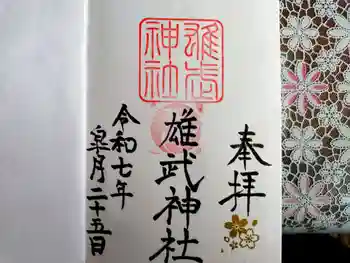 奉拝
雄武神社
神社
令和七年
皐月二十五日